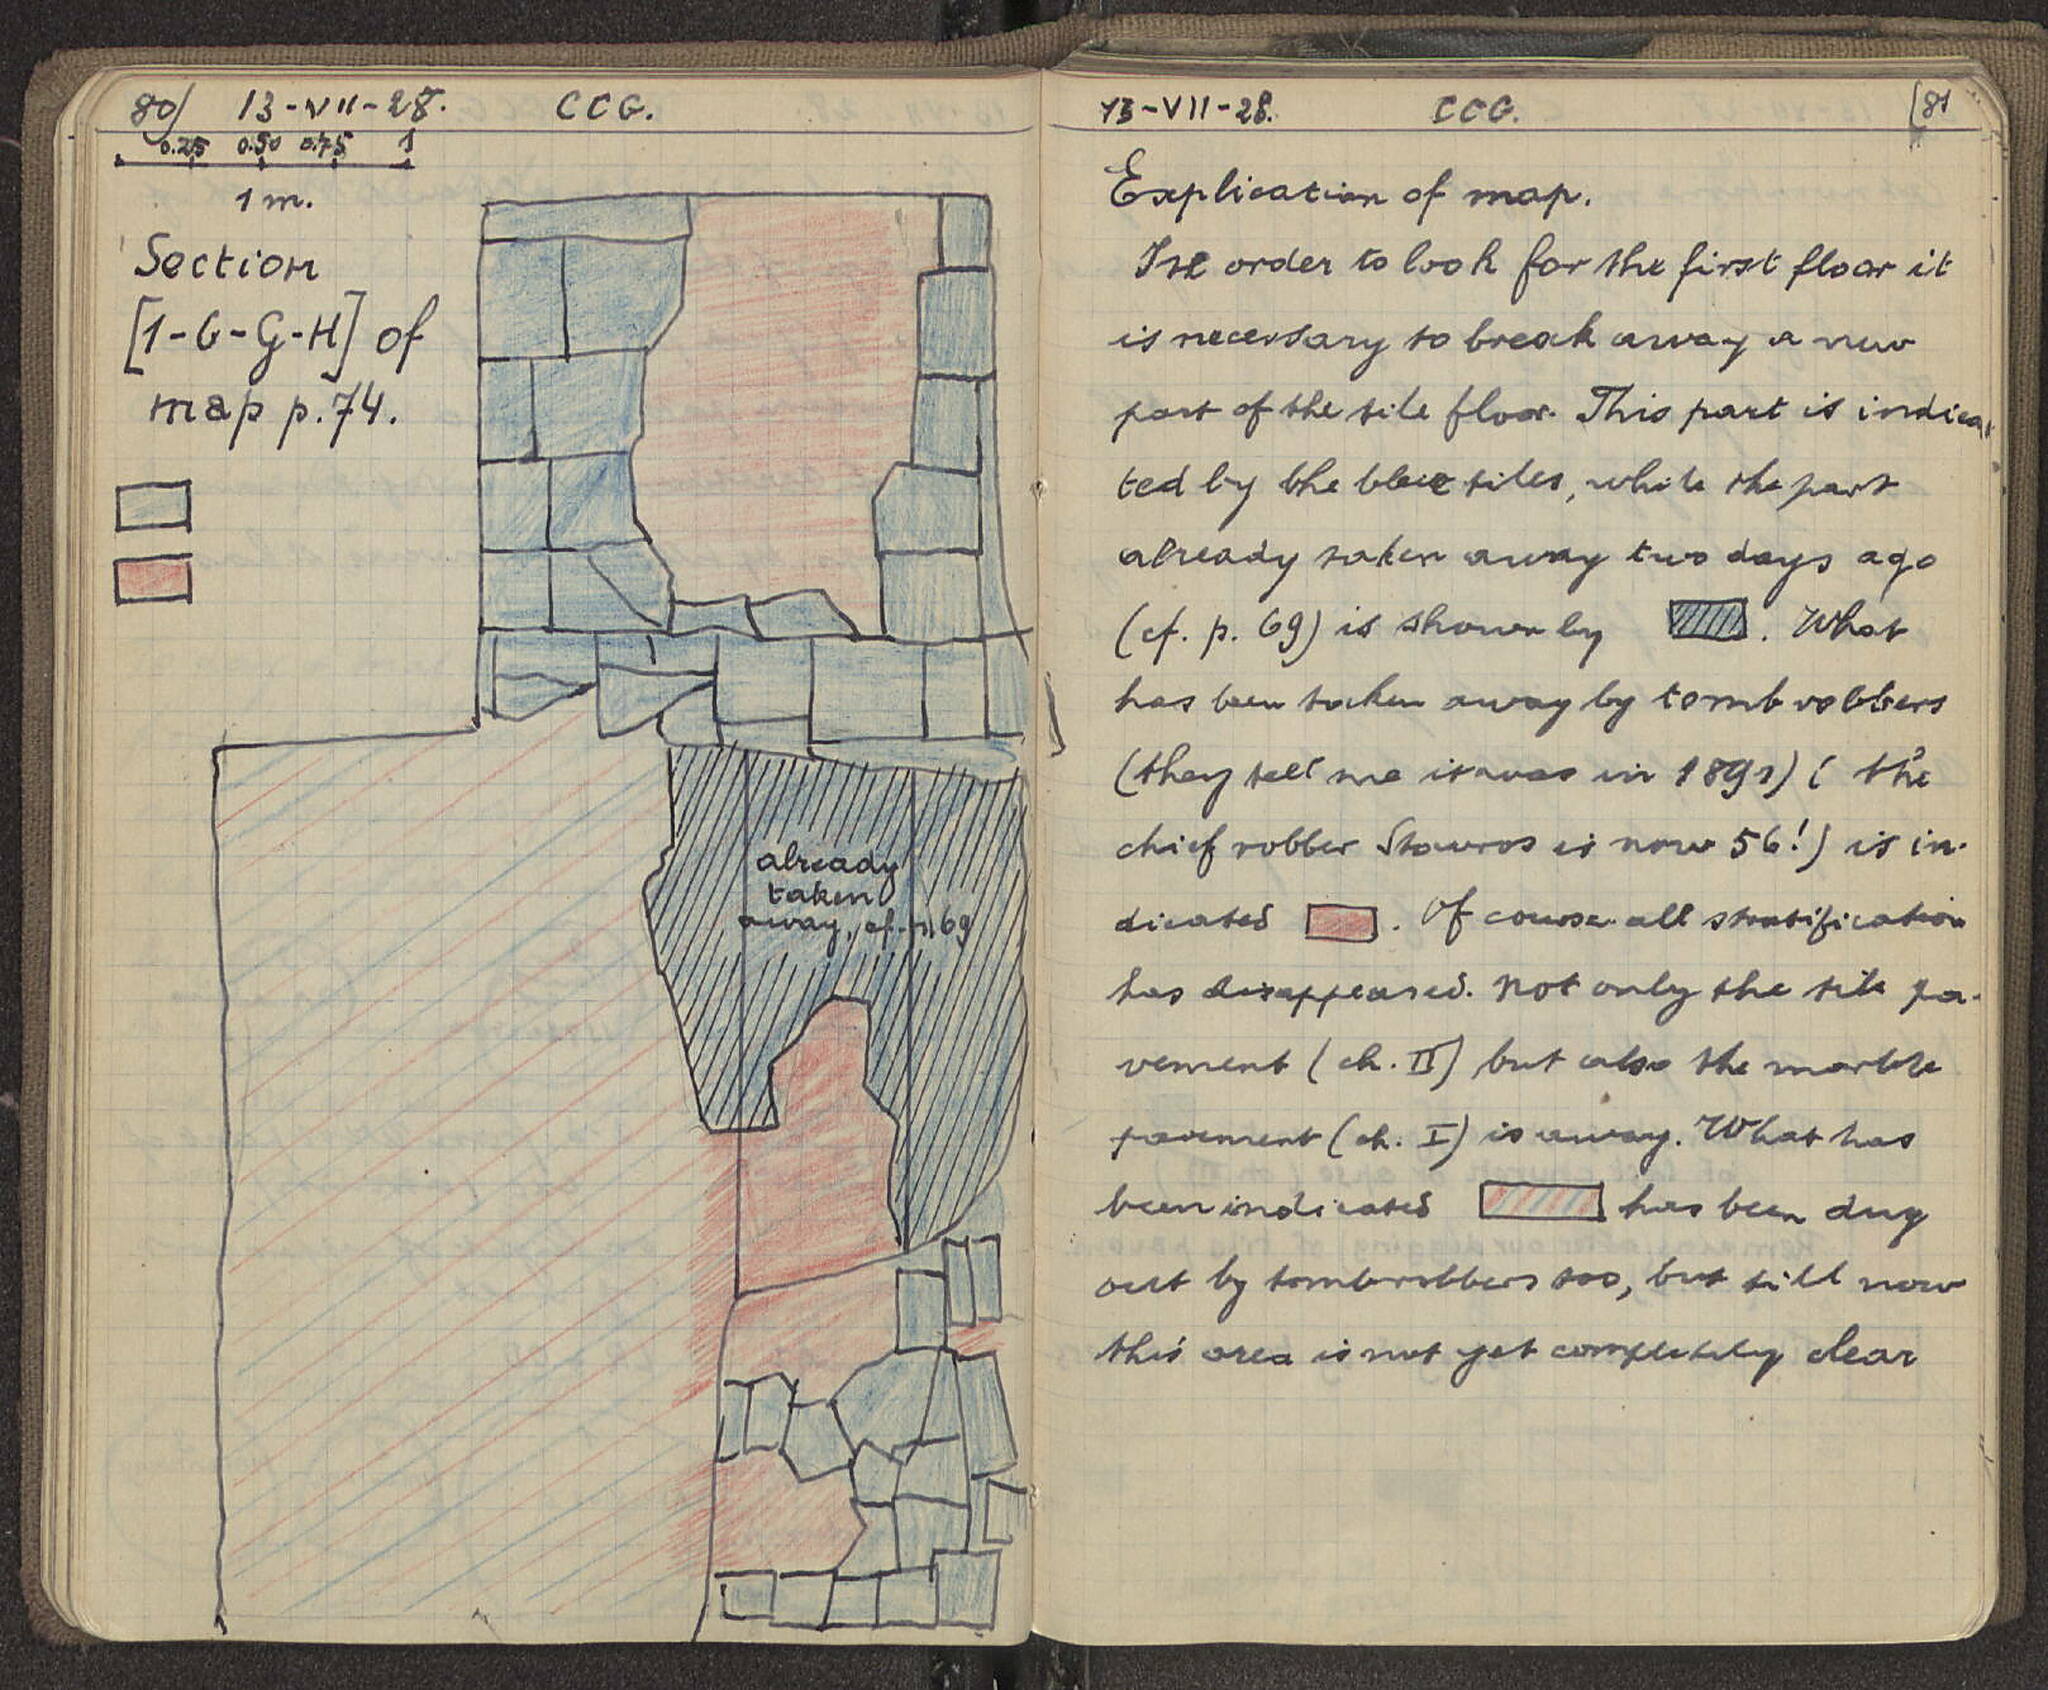 80) 13-VII-28. CCG.
0.25 0.50 0.75 1
1 m.
Section
[1-6-G-H] of
map p.74.
already
taken
away, cf. p. 69
13-VII-28. CCG. [81
Explication of map.
In order to look for the first floor it
is necessary to break away a new
part of the tile floor. This part is indica-
ted by the blue tiles, while the part
already taken away two days ago
(cf. p. 69) is shown by . What
has been taken away by tomb robbers
(they tell me it was in 1891) ( the
chief robber Stavros is now 56!) is in-
dicated . Of course all stratification
has disappeared. Not only the tile pa-
vement (ch. II) but also the marble
pavement (ch. I) is away. What has
been indicated has been dug
out by tombrobbers too, but till now
this area is not yet completely clear